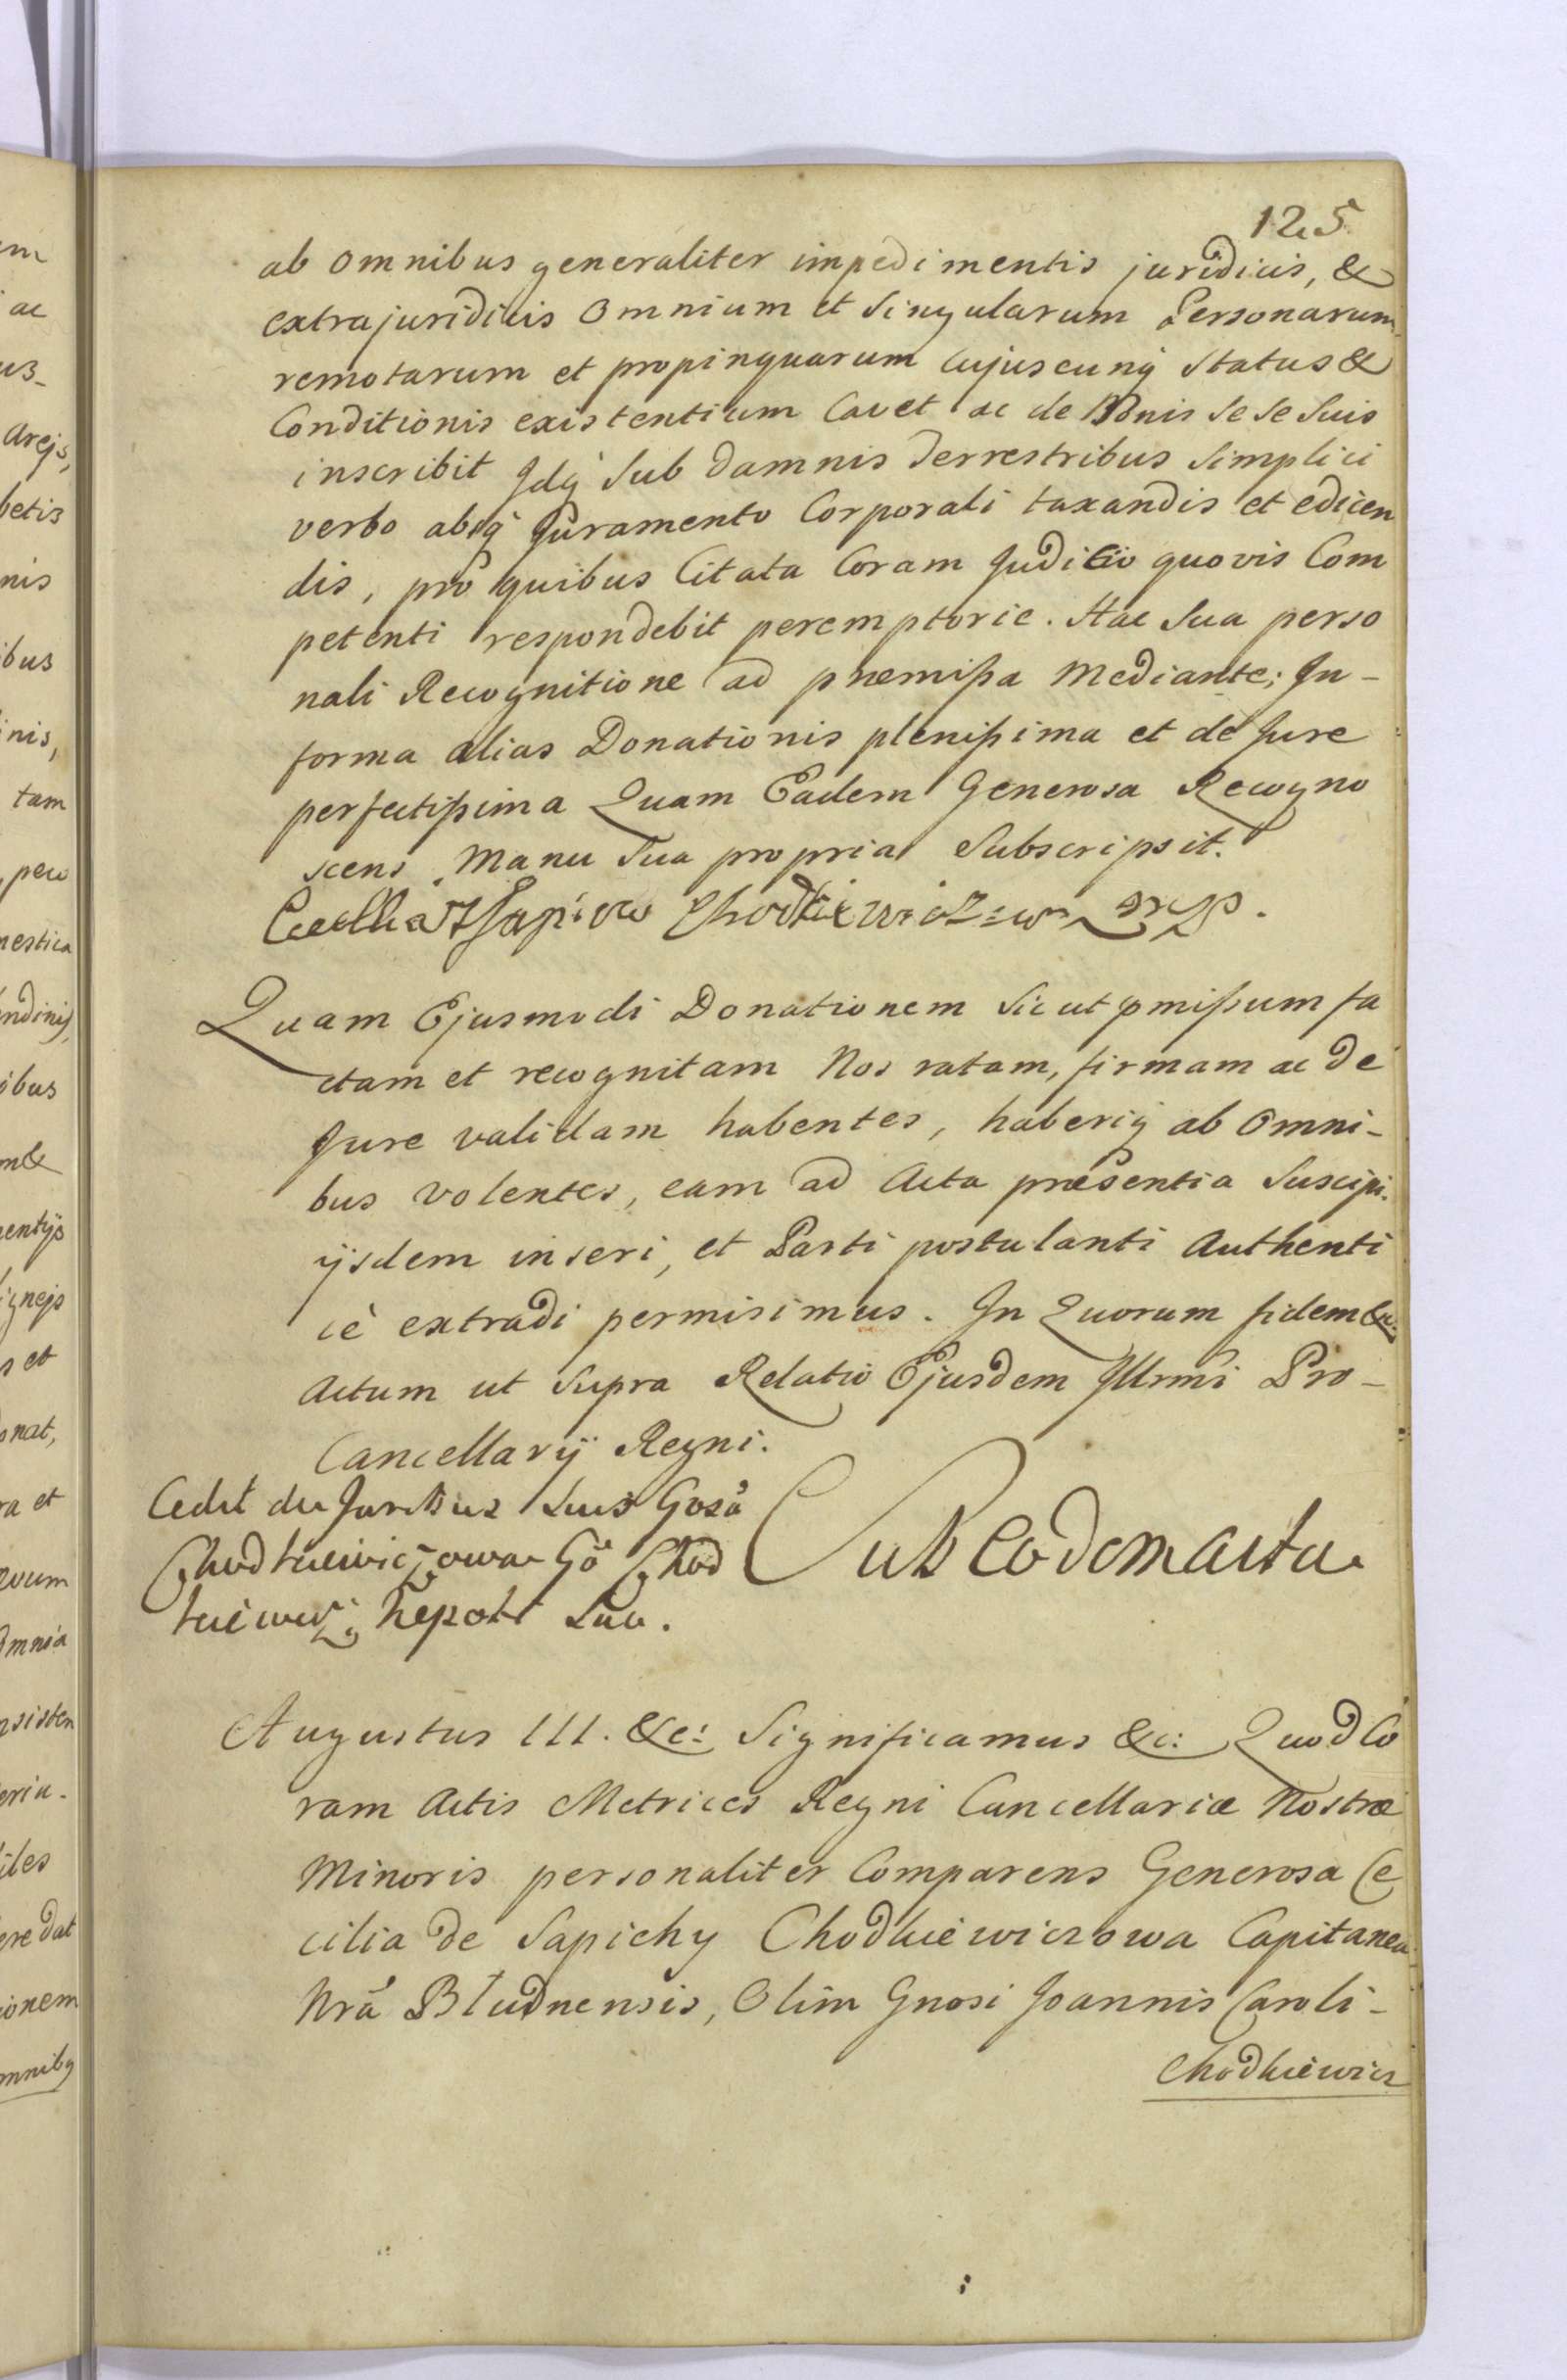 125
ab omnibus generaliter impedimentis juridicis, &
extrajuridicis omnium et singularum Personarum
remotarum et propinquarum cujuscunq status &
Conditionis existentium Cavet ac de Bonis se se suis
inscribit Jdq sub damnis Terrestribus simplici
verbo absq Juramento Corporali taxandis et edicen
dis, pro quibus Citata Coram Juditio quovis Com
petenti respondebit peremptorie. Hac sua perso
nali Recognitione ad præmißa mediante; Jn-
forma alias Donationis plenißima et de Jure
perfectißima Quam Eadem Generosa Recogno
scens Manu Sua propria Subscripsit.
Quam Ejusmodi Donationem sicut pmißum fa
ctam et recognitam Nos ratam, firmam ac de
Jure validam habentes, haberiq ab omni-
bus volentes, eam ad Acta præsentia suscipi
ijsdem inseri, et Parti postulanti Authenti
cè extradi permisimus. Jn Quorum fidem &c.
Actum ut supra Relatio Ejusdem Jllrmi Pro-
Cancellarij Regni.
Cedit de Juribus suis Gosa
Chodkiewiczowa Go Chod
kiewicz Nepoti suo.
Sub Eodem Actu
Augustus III. &c: Significamus &c: Quod Co
ram Actis Metrices Regni Cancellariæ Nostræ
Minoris personaliter Comparens Generosa Ce
cilia de Sapiehy Chodkiewiczowa Capitanea
Nrã Błudnensis, Olim Gnosi Joannis Caroli-
Chodkiewicz